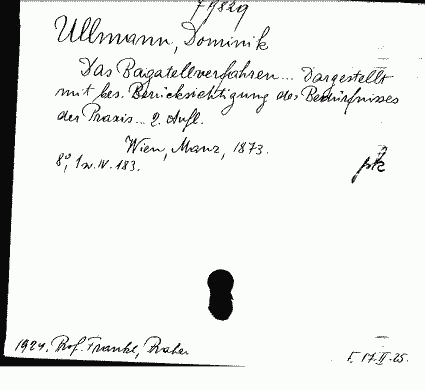 79829
Ullmann, Dominik
Das Bagatellverfahren... Dargestellt
mit bes. Berücksichtigung des Bedürfnisses
der Praxis... 2. Aufl.
Wien, Manz, 1873.
8°, IV. 183.
1924. Prof. Frankl,
17.II.25.